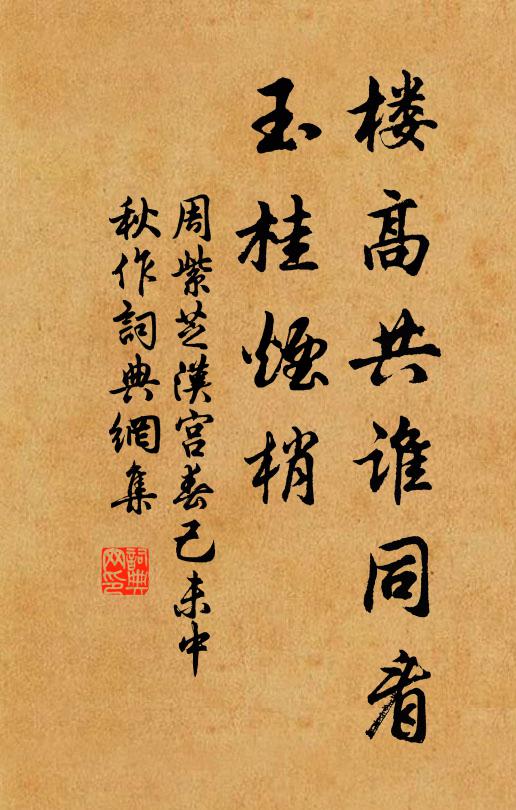 楼高共谁同看
玉桂烟梢
周紫芝漢宫春己未中
秋作詞典網集
詞典網印